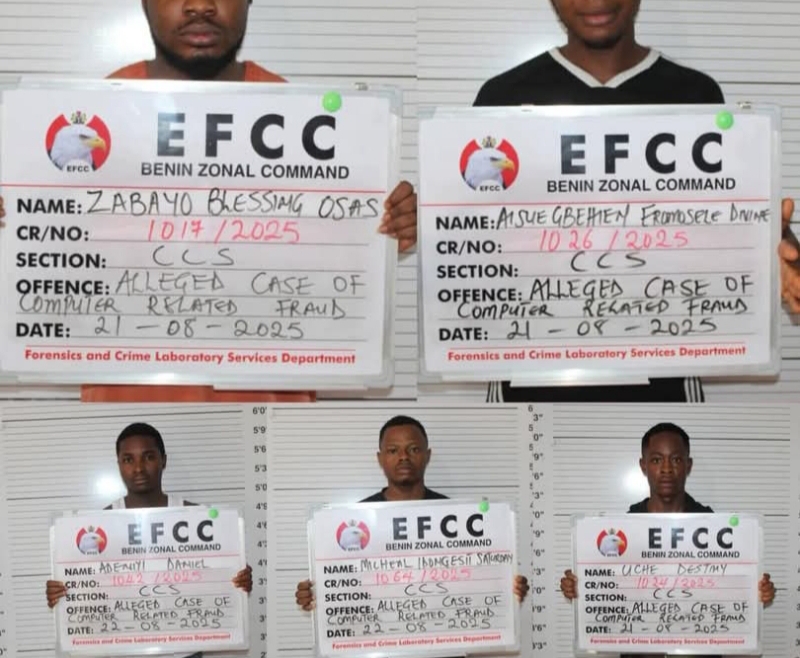 EFCC
EFCC
BENIN ZONAL COMMAND
NAME: ZABAYO BLESSING OSAS
CR/NO: 1017/2025
SECTION: CCS
OFFENCE: ALLEGED CASE OF
COMPUTER RELATED FRAUD
DATE: 21-08-2025
Forensics and Crime Laboratory Services Department
EFCC
EFCC
BENIN ZONAL COMMAND
NAME: AISUEGBEHIEN Eromosele DIVINE
CR/NO: 1026/2025
SECTION: CCS
OFFENCE: ALLEGED CASE OF
COMPUTER RELATED FRAUD
DATE: 21-08-2025
Forensics and Crime Laboratory Services Department
6'0"
5'9"
5'6"
5'3"
5'0"
4'9"
EFCC
BENIN ZONAL COMMAND
NAME: ADENIYI DANIEL
CR/NO: 1042/2025
SECTION: CCS
OFFENCE: ALLEGED CASE OF
COMPUTER RELATED FRAUD
DATE: 22-08-2025
Forensics and Crime Laboratory Services Department
EFCC
BENIN ZONAL COMMAND
NAME: MICHEAL SATURDAY
CR/NO: 1064/2025
SECTION: CCS
OFFENCE: ALLEGED CASE OF
COMPUTER RELATED FRAUD
DATE: 22-08-2025
Forensics and Crime Laboratory Services Department
EFCC
BENIN ZONAL COMMAND
NAME: UCHE DESTINY
CR/NO: 1024/2025
SECTION: CCS
OFFENCE: ALLEGED CASE OF
COMPUTER RELATED FRAUD
DATE: 21-08-2025
Forensics and Crime Laboratory Services Department